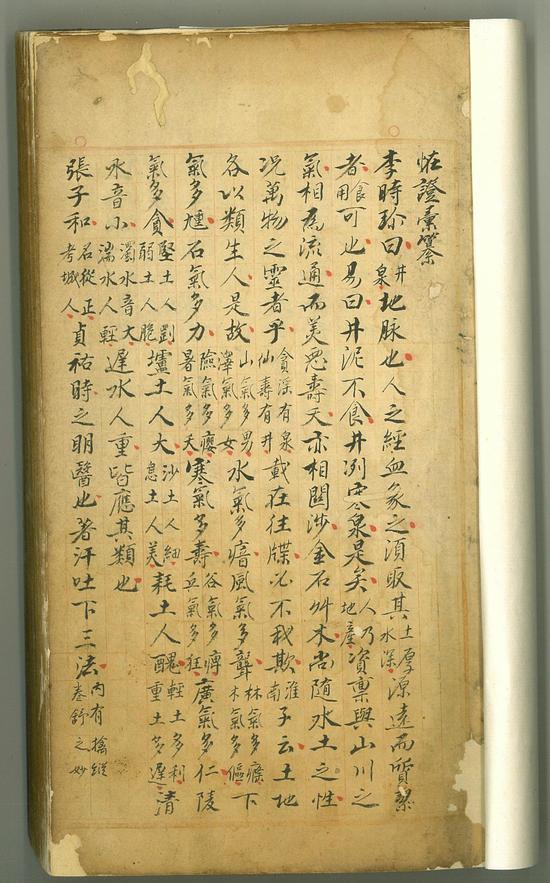 恠證彙纂
李時珍曰井泉地脉也人之經血象之須取其土厚水深源遠而質潔
者食用可也易曰井泥不食井冽寒泉是矣人乃地產資禀與山川之
氣相爲流通而美惡壽夭亦相關涉金石艸木尚随水土之性
况萬物之靈者乎貪淫有泉仙壽有井載在往牒必不我欺淮南子云土地
各以類生人是故山氣多男澤氣多女水氣多瘖風氣多聾林氣多癃木氣多傴下
氣多尰石氣多力險氣多癭暑氣多夭寒氣多壽谷氣多痺丘氣多狂廣氣多仁陵
氣多貪堅土人剛弱土人脆壚土人大沙土人細息土人美耗土人醜輕土多利重土多遲清
水音小濁水音大湍水人輕遲水人重皆應其類也
張子和名從正考城人貞祐時之明醫也著汗吐下三法內有擒縱卷舒之妙